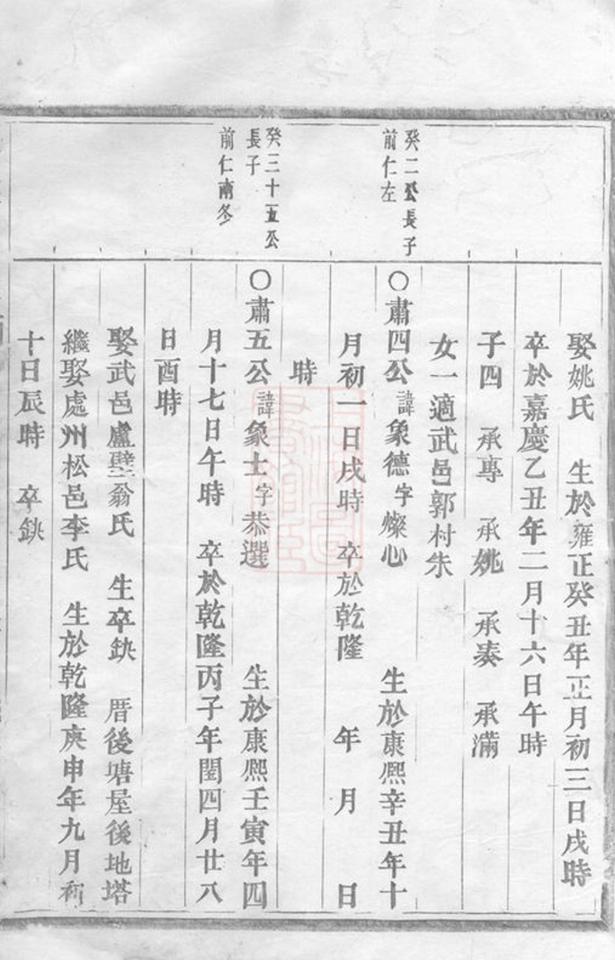 娶姚氏　生於雍正癸丑年正月初三日戌時
卒於嘉慶乙丑年二月十六日午時
子四　承專　承姚　承奏　承滿
女一適武邑郭村朱
癸二公長子
前仁左
〇肅四公諱象德字燦心　生於康熙辛丑年十
月初一日戌時　卒於乾隆　年　月　日
時
癸三十五公
長子
前仁南冬
〇肅五公諱象士字恭選　生於康熙壬寅年四
月十七日午時　卒於乾隆丙子年閏四月廿八
日酉時
娶武邑盧壁翁氏　生卒缺　厝後塘屋後地塔
繼娶處州松邑李氏　生於乾隆庚申年九月初
十日辰時　卒缺